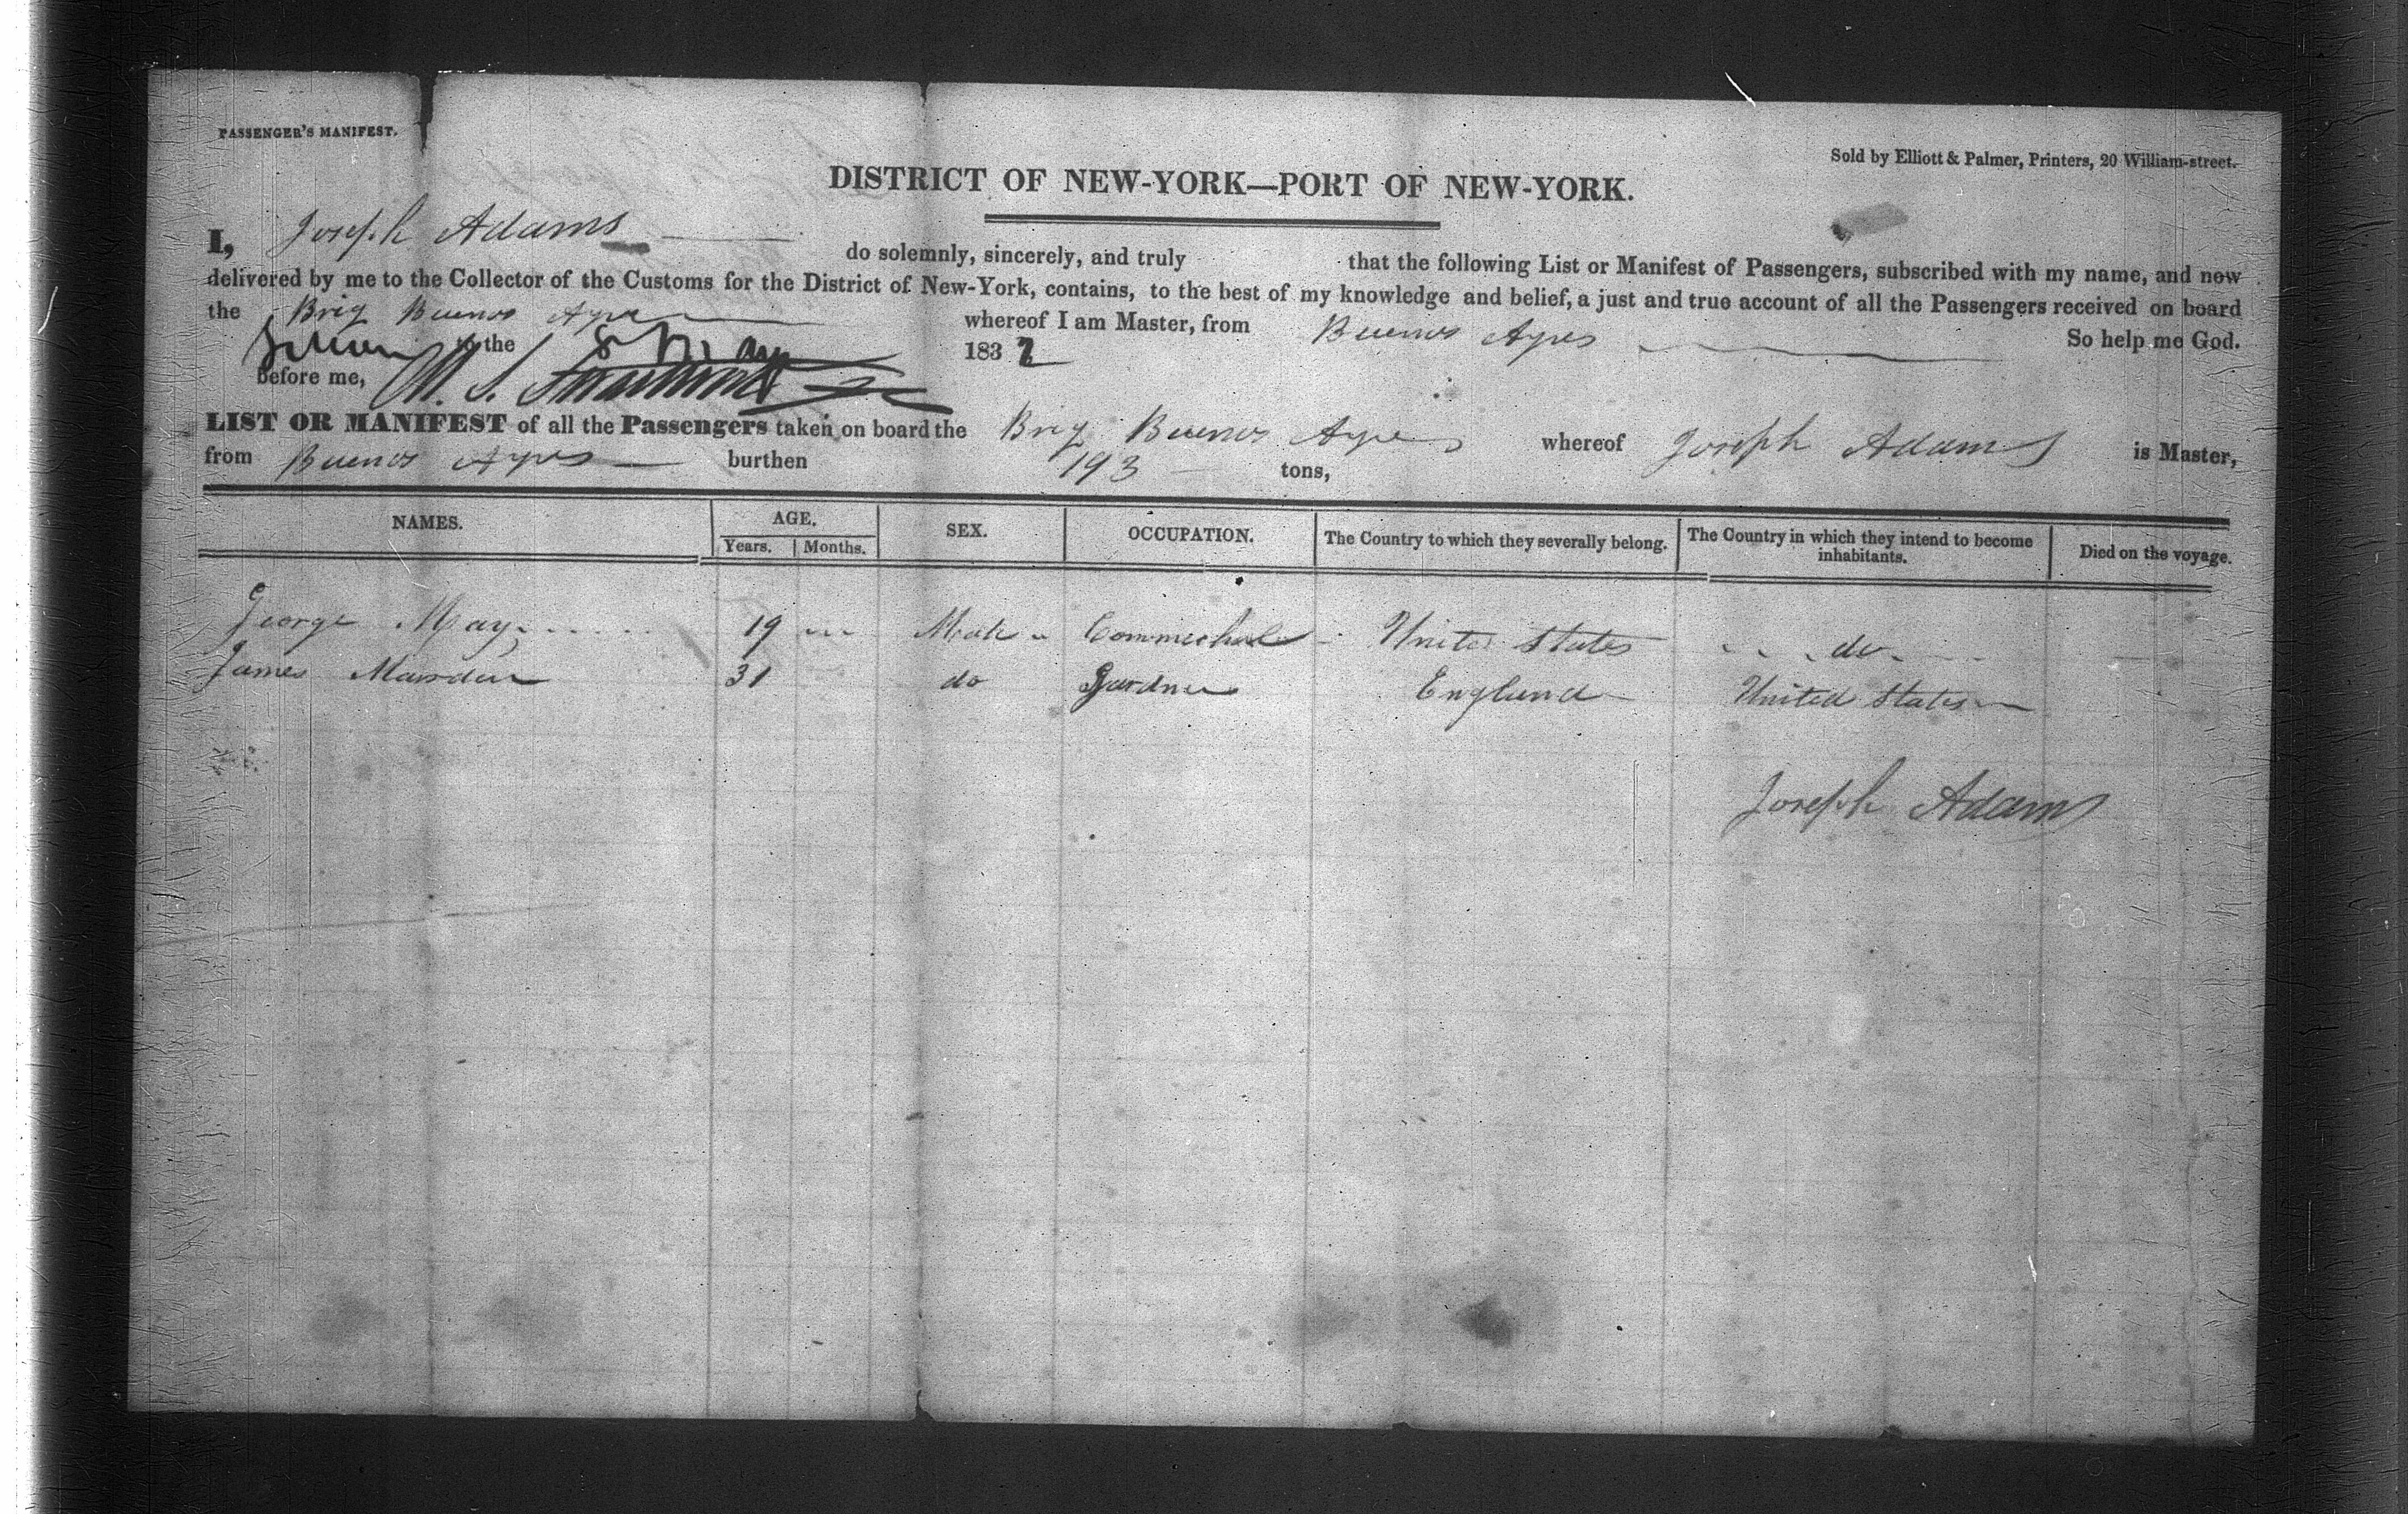 PASSENGER'S MANIFEST.
Sold by Elliott & Palmer, Printers, 20 William-street.
DISTRICT OF NEW-YORK—PORT OF NEW-YORK.
I, Joseph Adams do solemnly, sincerely, and truly that the following List or Manifest of Passengers, subscribed with my name, and now
delivered by me to the Collector of the Customs for the District of New-York, contains, to the best of my knowledge and belief, a just and true account of all the Passengers received on board
the Brig Buenos Ayres whereof I am Master, from Buenos Ayres So help me God.
to the 8 May 1832
Before me,
LIST OR MANIFEST of all the Passengers taken on board the Brig Buenos Ayres whereof Joseph Adams is Master,
from Buenos Ayres burthen 193 tons,
NAMES. AGE. SEX. OCCUPATION. The Country to which they severally belong. The Country in which they intend to become inhabitants. Died on the voyage.
Years. Months.
George May 19 Male United States do
James 31 do Gardner England United States
Joseph Adams